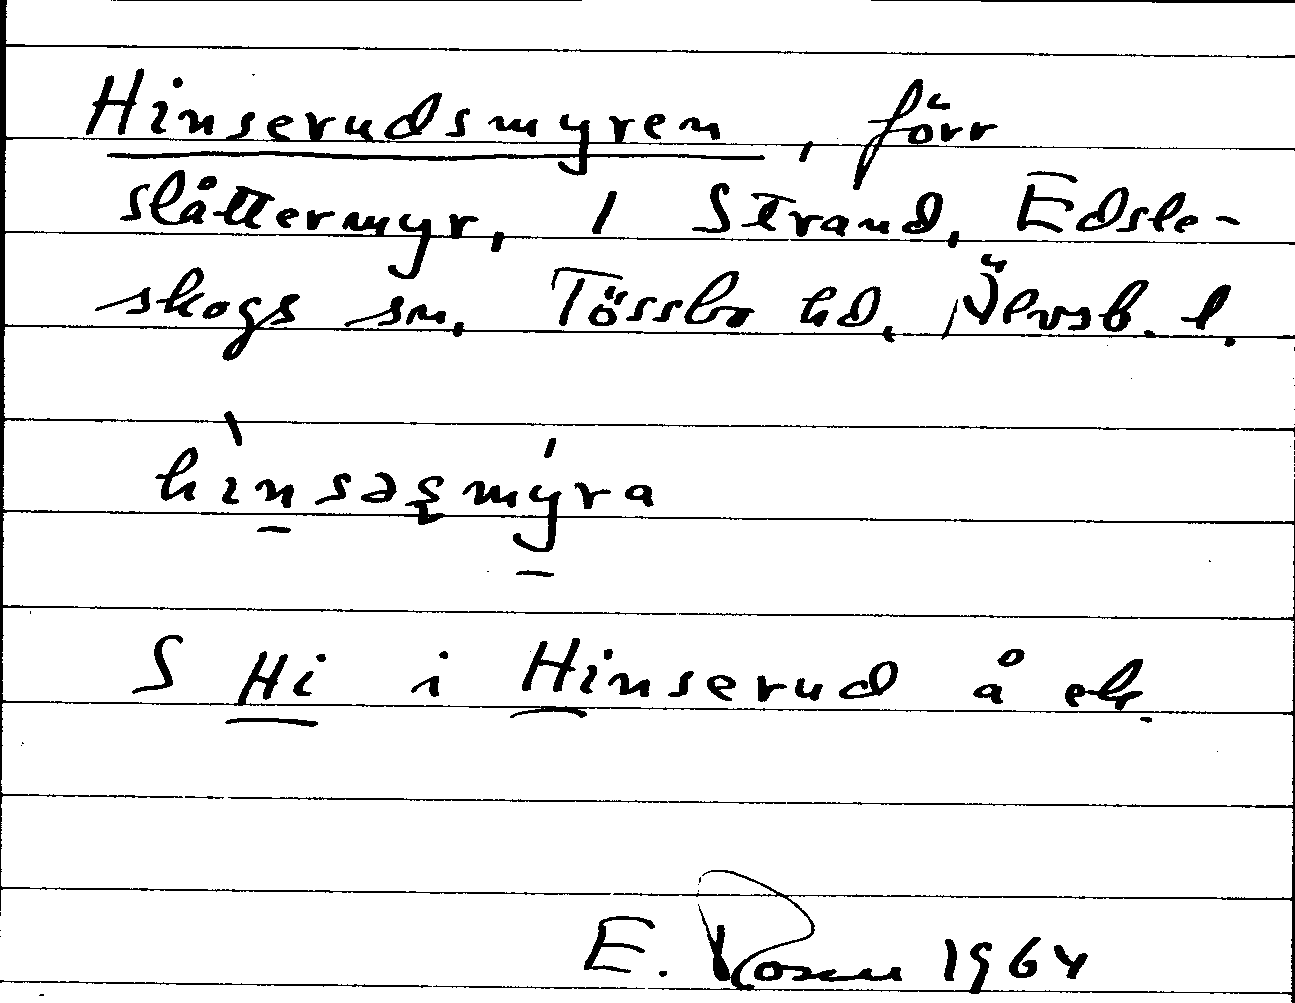 Hinserudsmyren, förr
slåttermyr, 1 Strand, Edsle-
skogs sn, Tössbo hd, Älvsb. l.
hìn̲səs̨mý̲ra
S Hi i Hinserud å ek.
E. Rosén 1964